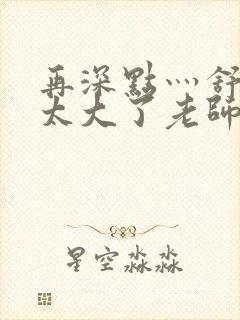 再深點灬舒
太大了老師
星空淼淼